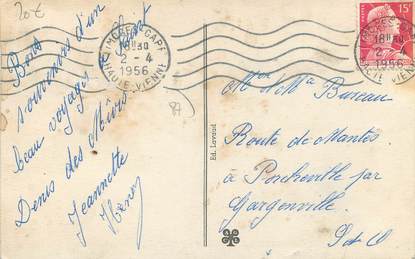 20€
Bons
souvenirs d'un
beau voyage. Saint
Denis des Murs
Jeannette
Henry
87
LIMOGES-GARE
18H30
2-4
1956
HTE VIENNE
15F
LIMOGES-GARE
18H30
2-4
1956
HTE VIENNE
Ed. Lavaud
Mr et Me Bureau
Route de Mantes
à Porcheville par
Gargenville
S et O